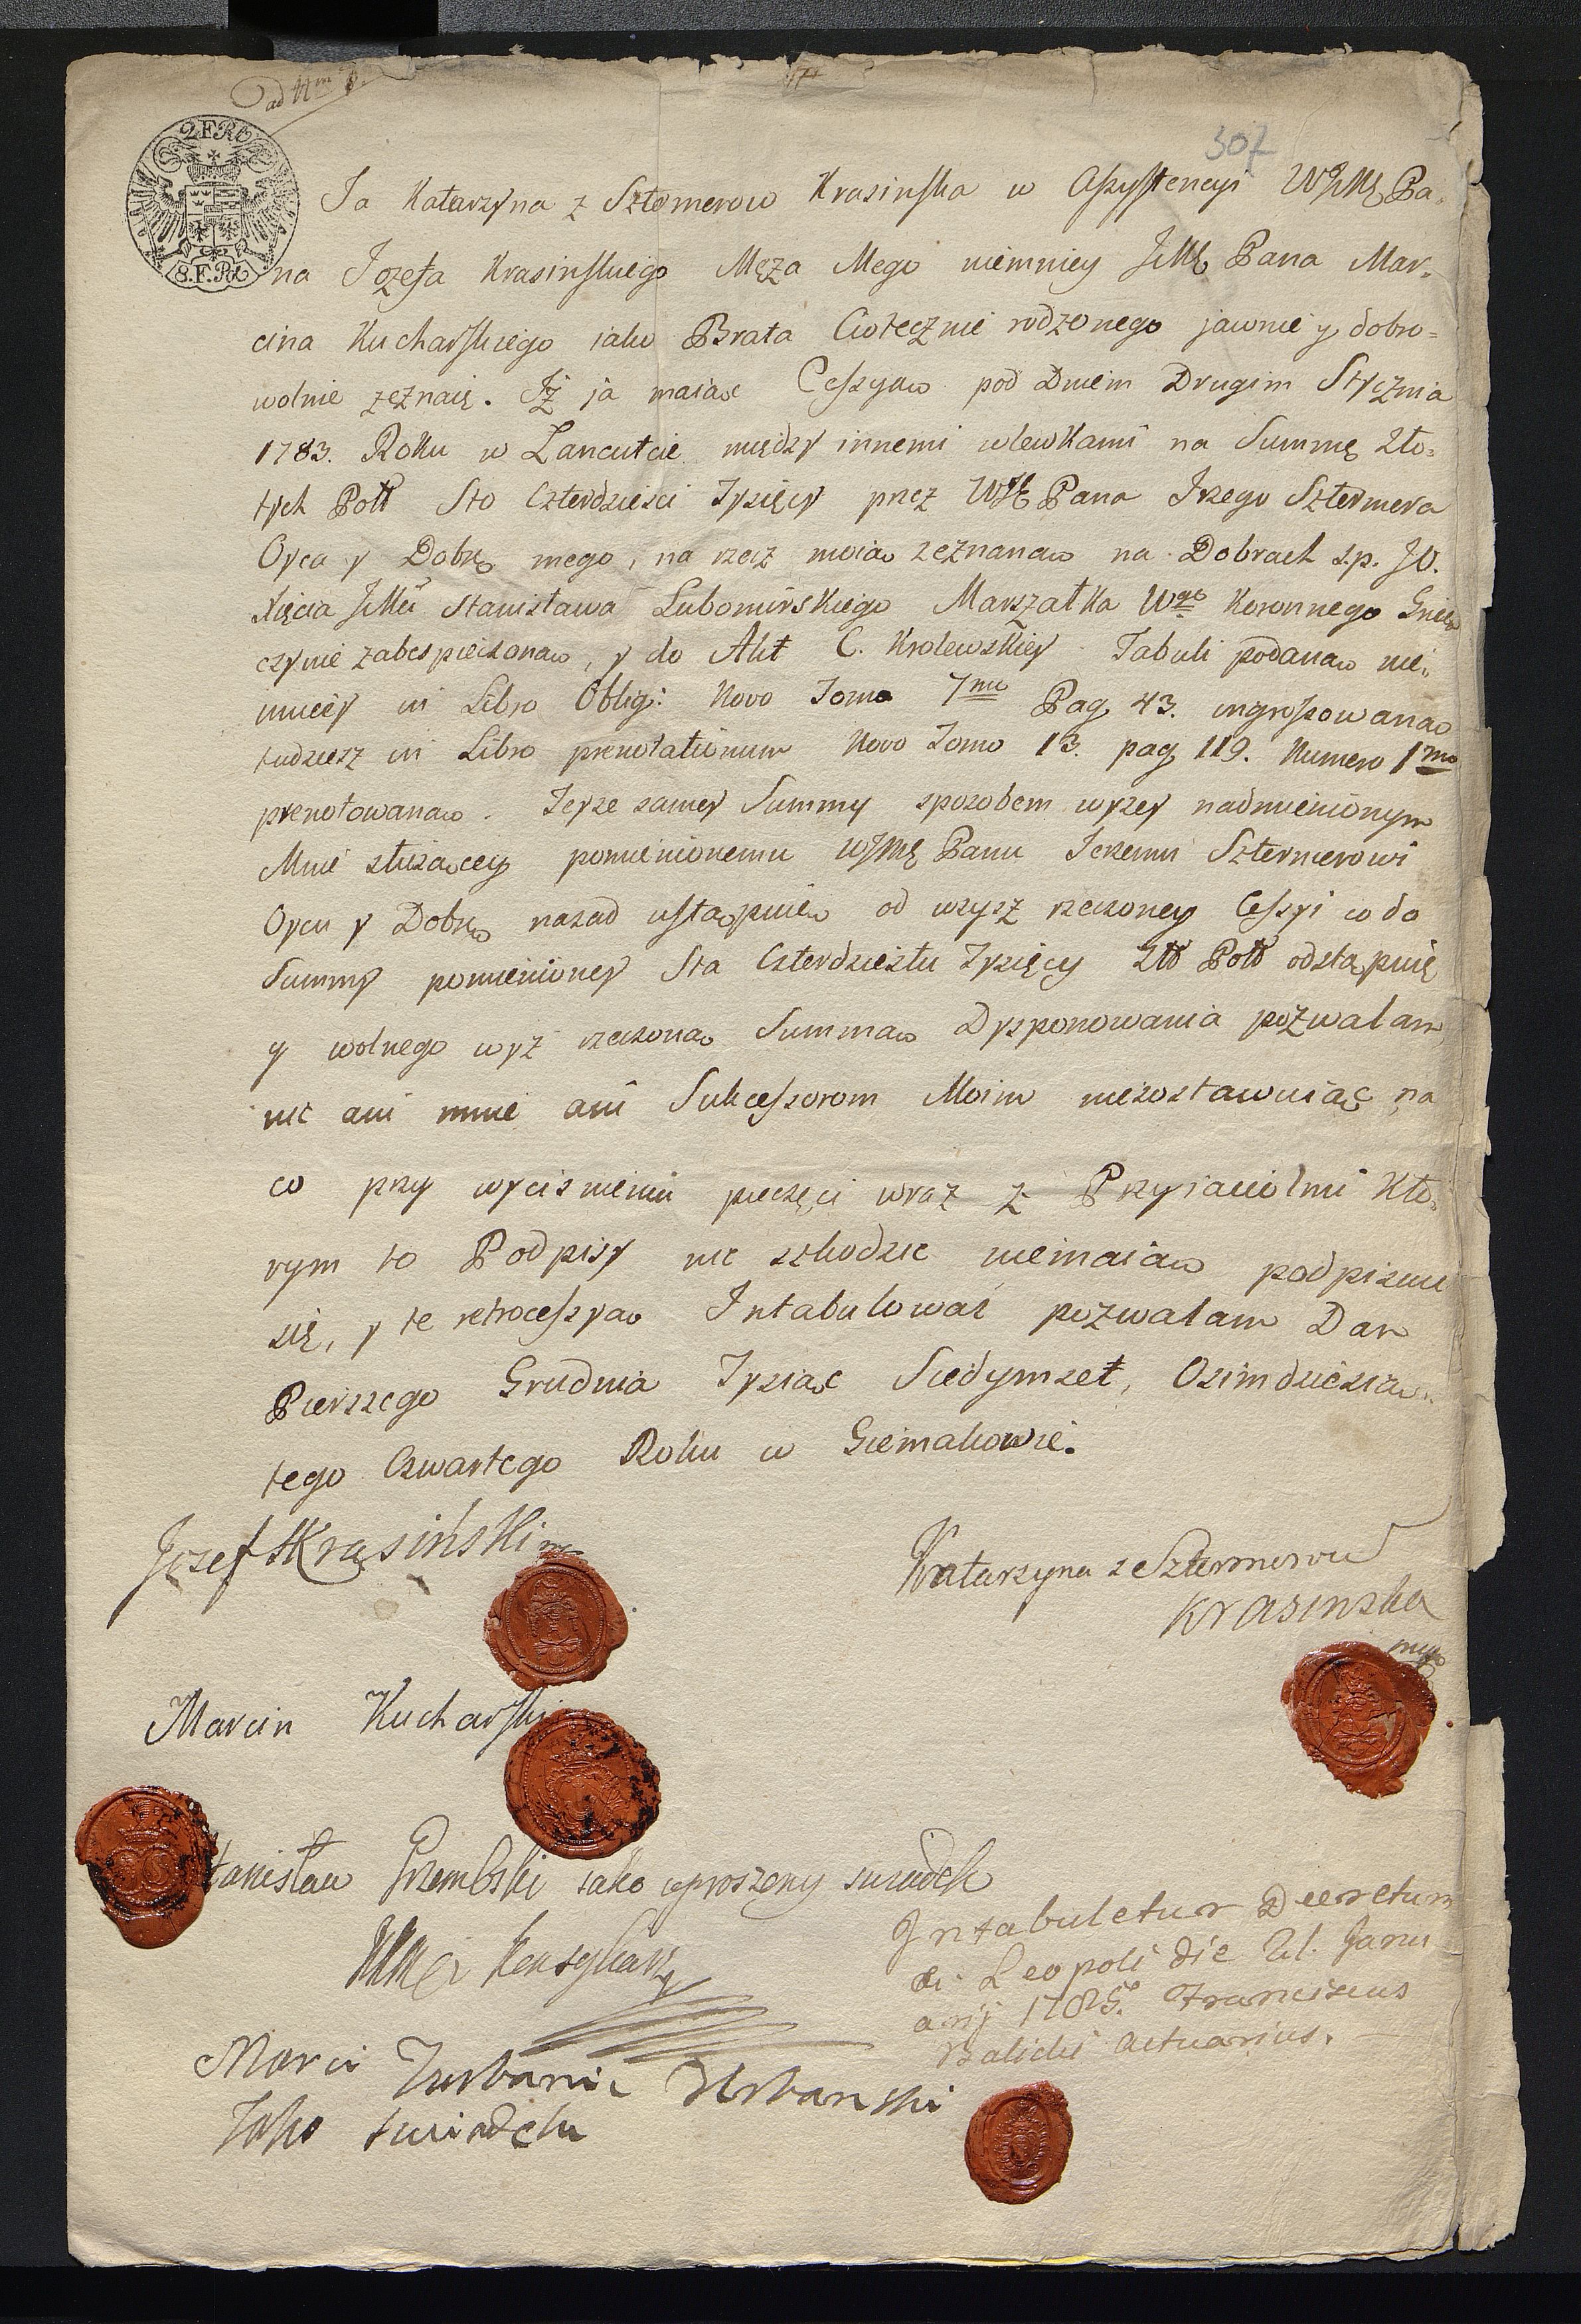 307
2 F Rh
8. F. Po
Ja Katarzyna z Sztemerow Krasinska w Assystencyi WJMę Pa„
na Jozefa Krasinskiego Męza Mego niemniey JMę Pana Mar„
cina Kucharskiego iako Brata Ciotecznie rodzonego jawnie y dobro=
wolnie zeznaię. Iż ja maiac Cessyaw pod Dniem Drugim Stycznia
1783. Roku w Lancutcie między innemi wlewkami na Summę Zło=
tych Poll Sto Czterdziesci Tysięcy przez WJę Pana Jrzego Sztermera
Oyca y Dobrę mego, na rzecz moiaw zeznanaw na Dobrach s.p. JO.
Xięcia JMci Stanisława Lubomirskiego Marszałka Wgo Koronnego
czynie zabespieczonaw, y do Akt C. Krolewskiey Tabuli podanaw nie„
mniey in Libro Oblig: Novo Tomo 7mo Pag 43. ingrossowanaw
tudziesz in Libro prenotationum Novo Tomo 13. pag 119. Numero 1mo
prenotowanaw. Teyze samey Summy sposobem wyzey nadmienionym
Mnie sluzawcey pomienionemu WJMę Panu Jerzemu Sztermerowi
Oycu y Dobrę nazad ustawpuiew od wzysz rzeczoney Cessyi co do
Summy pomienioney Sta Czterdziestu Tysięcy Zll Poll odstąpuię
y wolnego wyz rzeczonaw Summaw Dysponowania pozwalam
nic ani mnie ani Sukcessorom Moim niezostawuiąc na
co przy wycisnieniu pieczęci wraz z Przyiaciołmi Kto„
rym to Podpisy nic szkodzic niemaiaw podpisuie
się, y te retrocessyaw Intabulowac pozwalam Dan
Pierszego Grudnia Tysiac Siedymset, Osimdziesiaw„
tego Czwartego Roku w Siemakowie.
Jozef Krasiński mp
Katarzyna z Sztermerow
Krasinska
mp
Marcin Kucharski
Stanisław Grzembski iako uproszony swiadek
Intabuletur Decretum
Leopoli die Janu
arij 1785. Franciscus
Balicki Actuarius.
Marci Urbanski
Jako swiadek